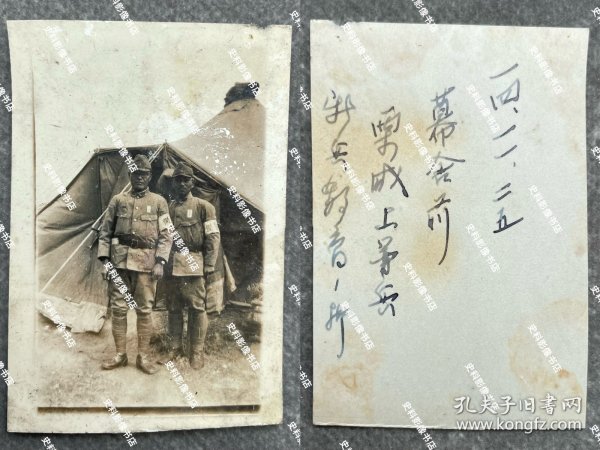 一四、一一、二五
幕舎前
栗城上等兵
新兵教育ノ折
史料影像书店
孔夫子旧书网
www.kongfz.com